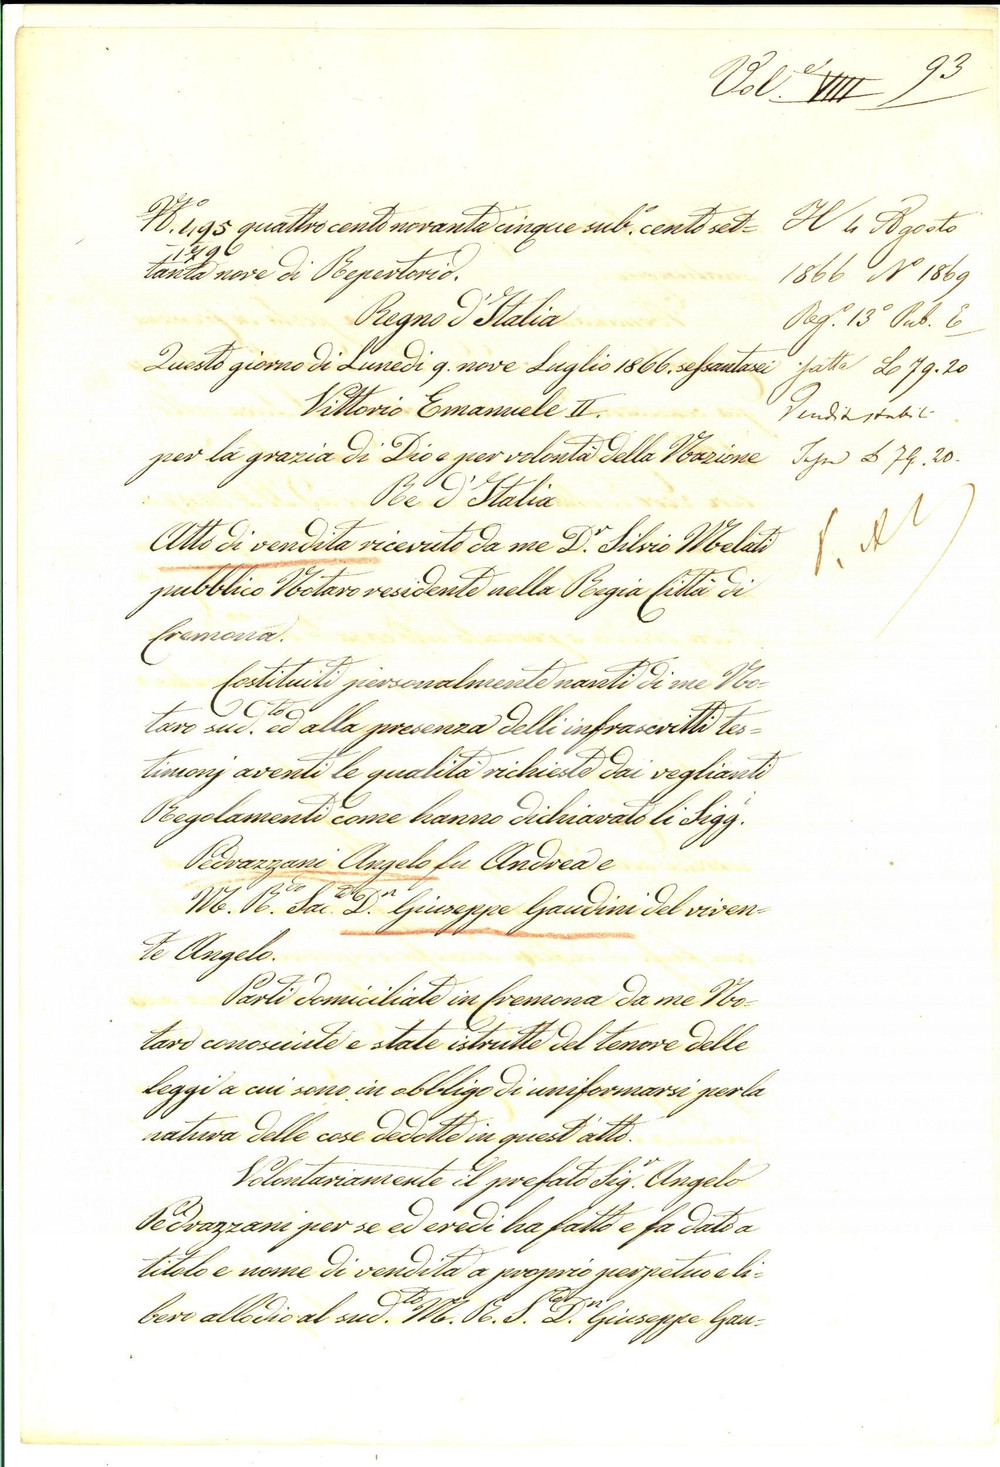 Vol.e VIIII 93
N.o 495 quattrocentonovantacinque sub.o cento set=
179
tanta nove di Repertorio.
Regno d'Italia
Questo giorno di Lunedì 9. nove Luglio 1866. sessantasei
Vittorio Emanuele II.
per la grazia di Dio e per volontà della Nazione
Re d'Italia
Atto di vendita ricevuto da me D.r Silvio Melati
pubblico Notaro residente nella Regia Città di
Cremona.
Costituiti personalmente nanti di me No=
taro sud.to ed alla presenza delli infrascritti tes=
timonj aventi le qualità richieste dai veglianti
Regolamenti come hanno dichiarato li Sigg.i
Pedrazzani Angelo fu Andrea e
M. R.do Sac.te D.n Giuseppe Gaudini del viven=
te Angelo.
Parti domiciliate in Cremona da me No=
taro conosciute e state istrutte del tenore delle
leggi a cui sono in obbligo di uniformarsi per la
natura delle cose dedotte in quest'atto.
Volontariamente il prefato Sig.r Angelo
Pedrazzani per se ed eredi ha fatto e fa dato a
titolo e nome di vendita a proprio perpetuo e li=
bero allodio al sud.to M. R. S. D.n Giuseppe Gau=
Il 4 Agosto
1866 N.o 1869
Reg.o 13.o Pub. E
fatta L 79.20
Vendita stabili
L 79.20.